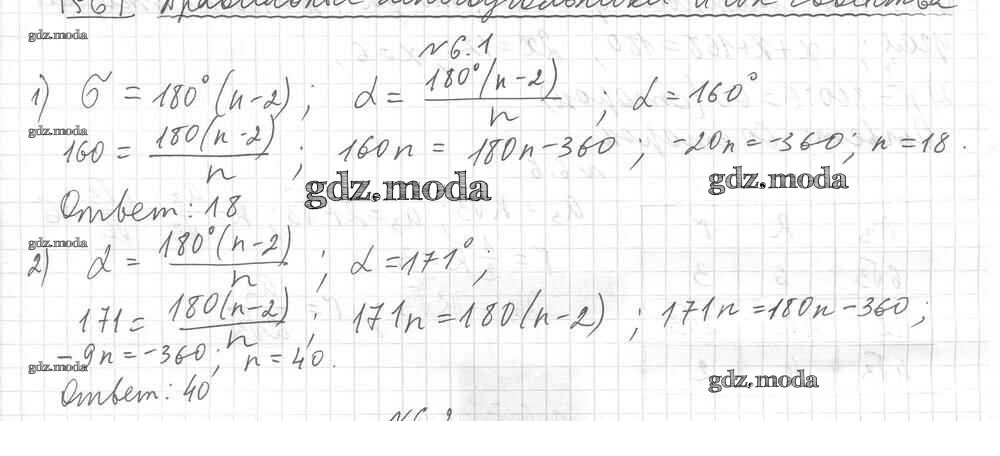 §6. Правильные многоугольники и их свойства
gdz.moda
№6.1
1) σ = 180°(n-2); α = 180°(n-2)/n; α = 160°
gdz.moda
160 = 180(n-2)/n; 160n = 180n-360; -20n = -360; n = 18.
gdz.moda
gdz.moda
Ответ: 18
gdz.moda
2) α = 180°(n-2)/n; α = 171°;
171 = 180(n-2)/n; 171n = 180(n-2); 171n = 180n-360;
-9n = -360; n = 40.
gdz.moda
gdz.moda
Ответ: 40